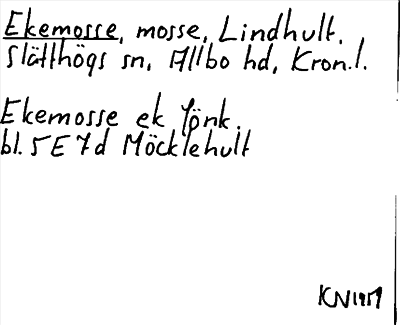 Ekemosse, mosse, Lindhult.
Slätthögs sn, Allbo hd, Kron.l.
Ekemosse ek Jönk.
bl. 5E7d Möcklehult